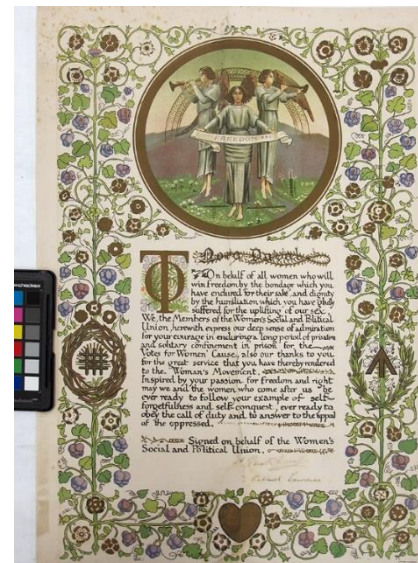 FREEDOM
TO
On behalf of all women who will
win freedom by the bondage which you
have endured for their sake, and dignity
by the humiliation which you have gladly
suffered for the uplifting of our sex.
We, the Members of the Women's Social and Political
Union, herewith express our deep sense of admiration
for your courage in enduring a long period of privation
and solitary confinement in prison for the
Votes for Women Cause, also our thanks to you
for the great service that you have thereby rendered
to the Woman's Movement.
Inspired by your passion for freedom and right
may we and the women who come after us be
ever ready to follow your example of self-
forgetfulness and self-conquest, ever ready to
obey the call of duty and to answer to the appeal
of the oppressed.
Signed on behalf of the Women's
Social and Political Union,